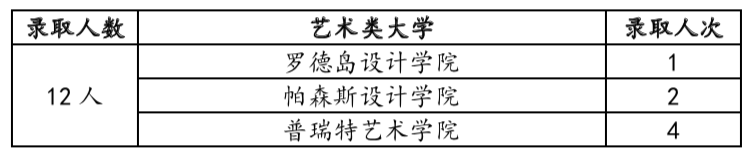 录取人数 艺术类大学 录取人次
12 人 罗德岛设计学院 1
帕森斯设计学院 2
普瑞特艺术学院 4